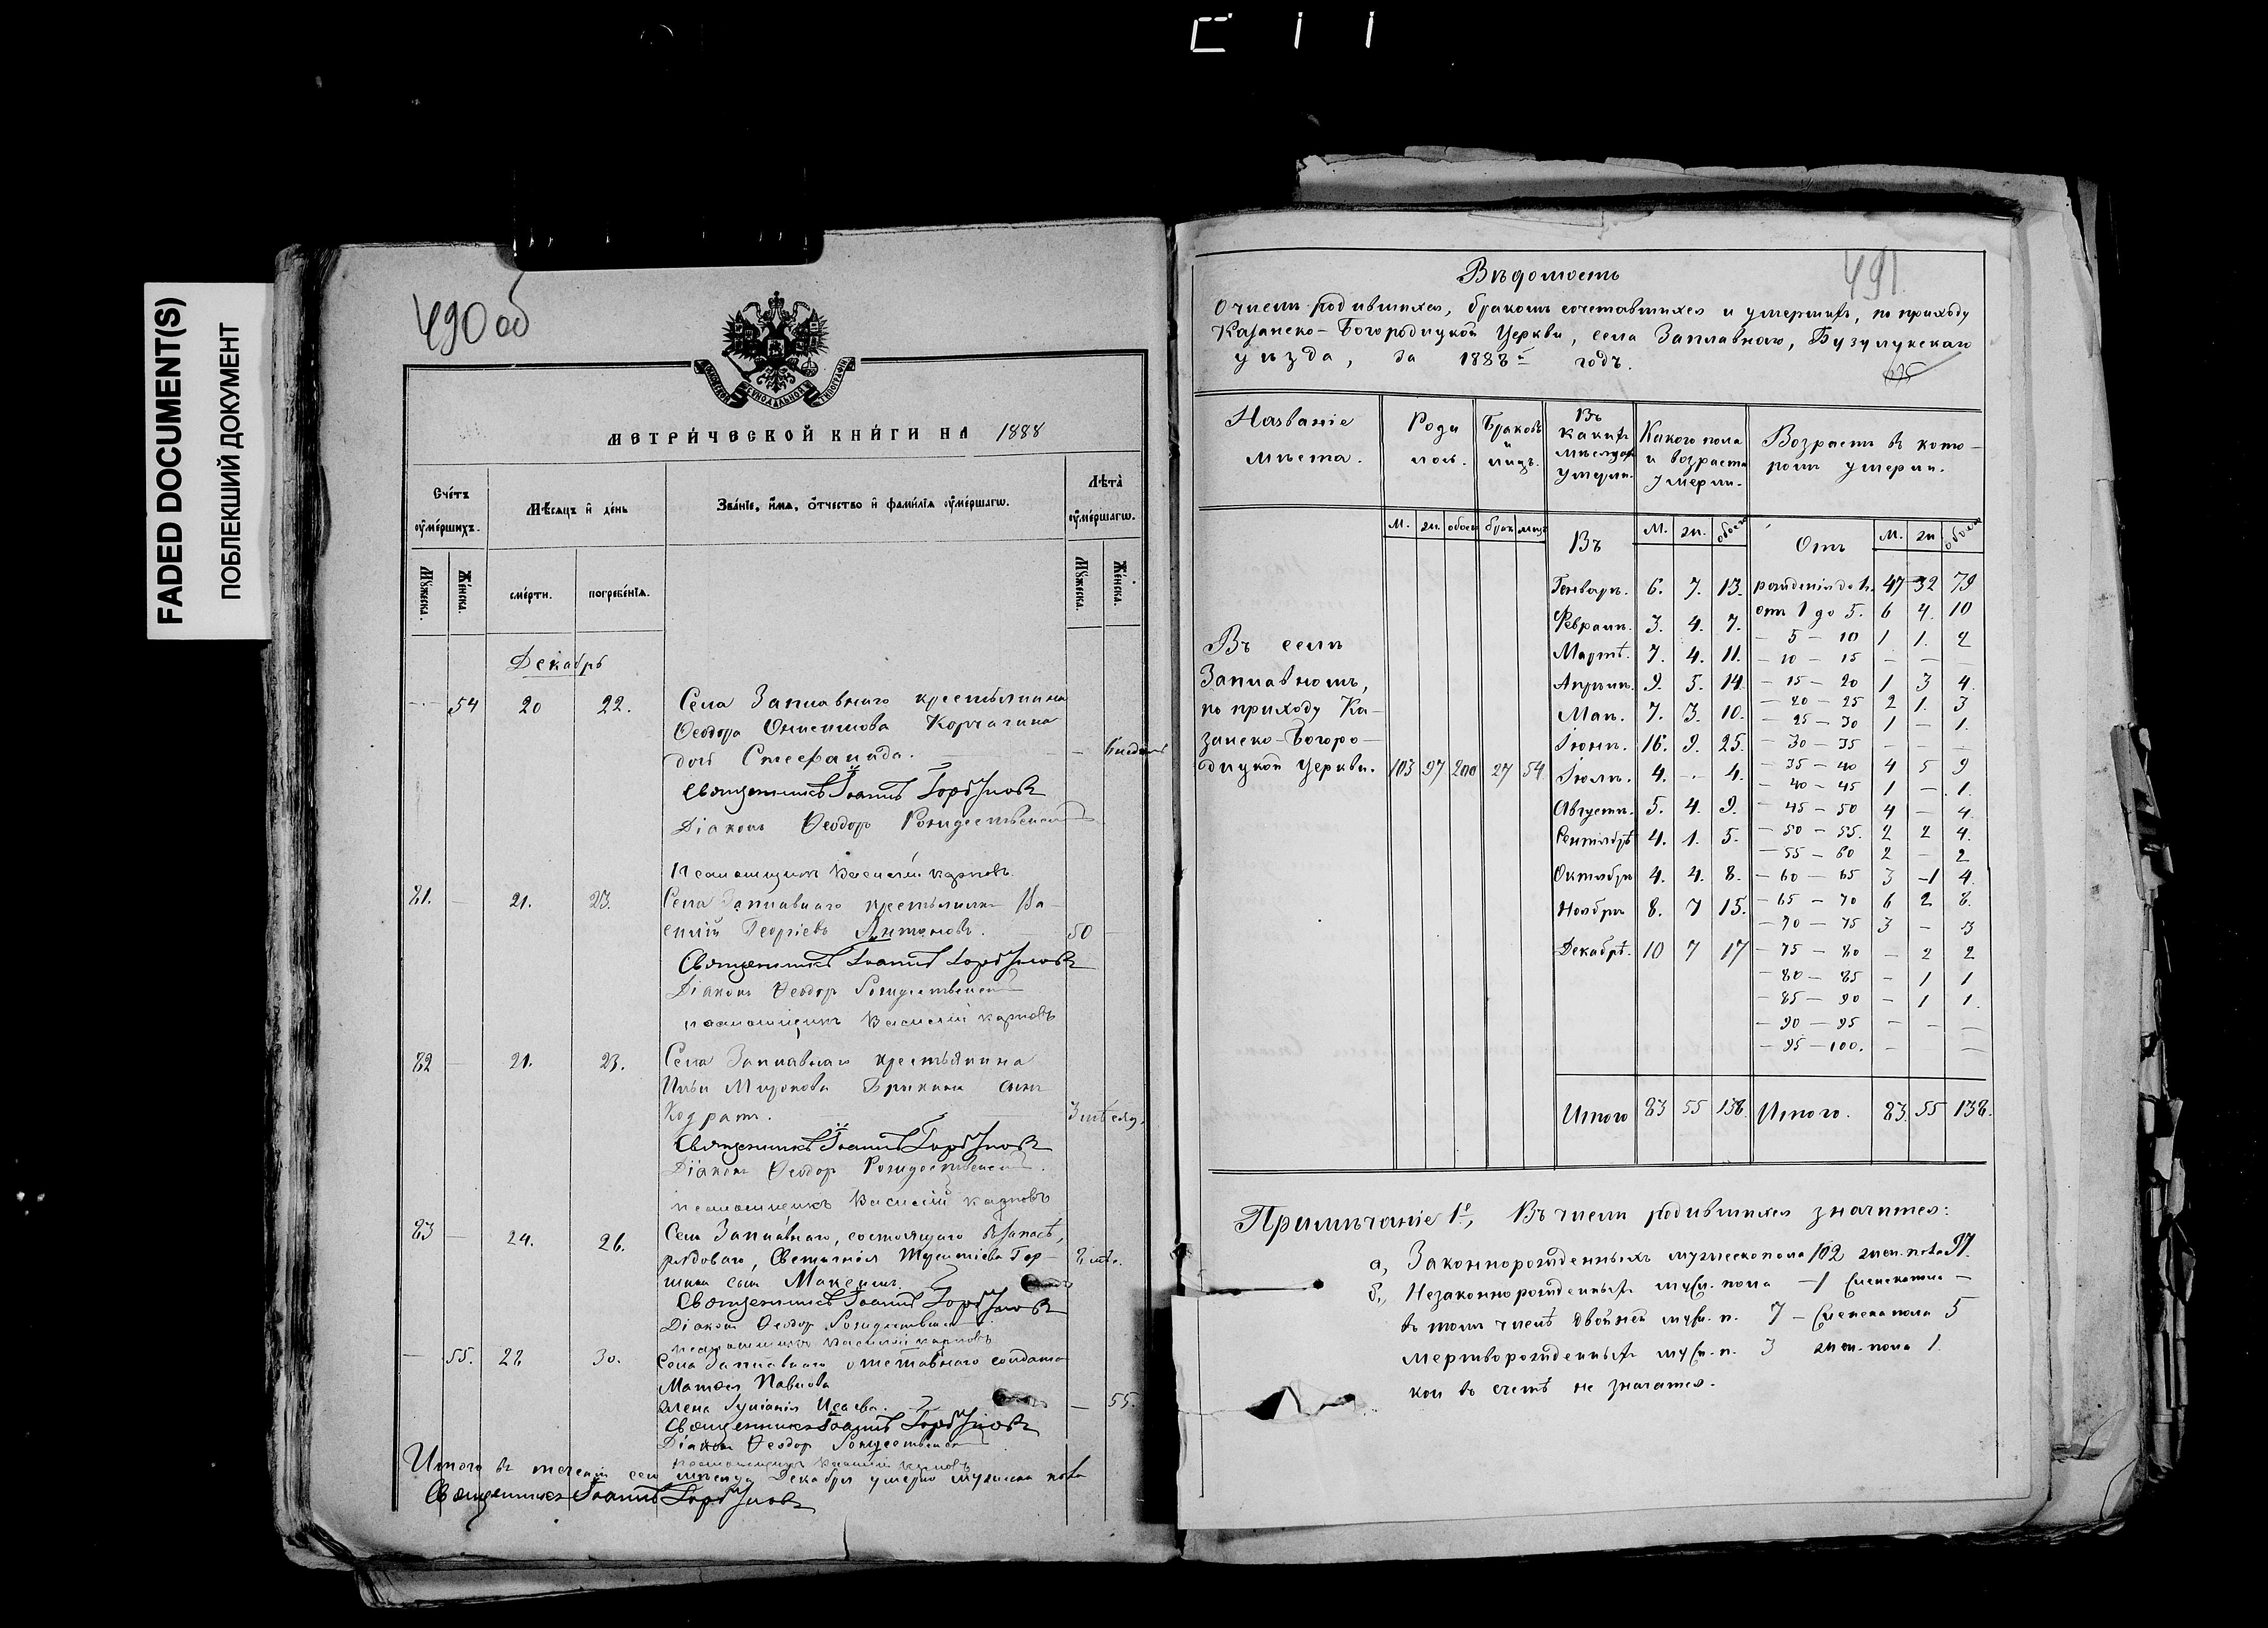 FADED DOCUMENT(S)
ПОБЛЕКШИЙ ДОКУМЕНТ
490 об
МОСКОВСКОЙ СѴНОДАЛЬНОЙ ТИПОГРАФІИ
МЕТРИЧЕСКОЙ КНИГИ НА 1888
Счетъ умершихъ.
Мѣсяцъ и день
Званіе, имя, отчество и фамилія умершагω.
Лѣта умершагω.
Мужеска.
Женска.
смерти.
погребенія.
Мужеска.
Женска.
Декабрь
— 54 20 22. Села Заплавнаго крестьянина
Ѳеодора Онисимова Корчагина
дочь Стефанида. —
Священникъ Іоаннъ
Діаконъ Ѳеодоръ Рождественскій
Псаломщикъ Василій Карповъ
81. — 21. 23. Села Заплавнаго крестьянинъ Ва-
силій Георгіевъ Антоновъ. 50 —
Священникъ Іоаннъ
Діаконъ Ѳеодоръ Рождественскій
псаломщикъ Василій Карповъ
82 — 21. 23. Села Заплавнаго крестьянина
Ильи Миронова сынъ
Кодратъ. 3 мѣсяц.
Священникъ Іоаннъ
Діаконъ Ѳеодоръ Рождественскій
псаломщикъ Василій Карповъ
83 — 24. 26. Села Заплавнаго, состоящаго въ запасѣ,
рядоваго,
сынъ Максимъ. 8 мѣс.
Священникъ Іоаннъ
Діаконъ Ѳеодоръ Рождественскій
псаломщикъ Василій Карповъ
— 55. 28 30. Села Заплавнаго отставнаго солдата
Матвея Павлова
жена Исаева. — 55.
Священникъ Іоаннъ
Діаконъ Ѳеодоръ Рождественскій
псаломщикъ Василій Карповъ
Итого въ теченіи сего мѣсяца Декабря умерло мужеска пола
Священникъ Іоаннъ
491.
Вѣдомость
О числѣ родившихся, бракомъ сочетавшихся и умершихъ, по приходу
Казанско-Богородицкой Церкви, села Заплавнаго, Бузулукскаго
уѣзда, за 1888й годъ.
Названіе мѣста.
Роди лось.
Браковъ и лицъ.
Въ какихъ мѣсяцахъ умерли.
Какого пола и возраста умерли.
Возрастъ въ кото-
ромъ умерли.
М. ж. обоего брак. лицъ Въ М. ж. обоего Отъ М. ж. обоего
Въ селѣ
Заплавномъ,
по приходу Ка-
занско-Богоро-
дицкой Церкви. 103 97 200 27 54
Генварѣ. 6. 7. 13.
Февралѣ. 3. 4. 7.
Мартѣ. 7. 4. 11.
Апрѣлѣ. 9. 5. 14.
Маѣ. 7. 3. 10.
Іюнѣ. 16. 9. 25.
Іюлѣ. 4. — 4.
Августѣ. 5. 4. 9.
Сентябрѣ 4. 1. 5.
Октябрѣ 4. 4. 8.
Ноябрѣ 8. 7 15.
Декабрѣ. 10 7 17
рожденія до 1. 47 32 79
отъ 1 до 5. 6 4. 10
— 5 — 10 1 1. 2
— 10 — 15 — — —
— 15 — 20 1 3 4.
— 20 — 25 2 1. 3
— 25 — 30 1 — 1.
— 30 — 35 — — —
— 35 — 40 4 5 9
— 40 — 45 1 — 1.
— 45 — 50 4 — 4.
— 50 — 55. 2 2 4.
— 55 — 60 2 — 2
— 60 — 65 3 1 4.
— 65 — 70 6 2 8.
— 70 — 75 3 — 3
— 75 — 80 — 2 2
— 80 — 85 — 1 1
— 85 — 90 — 1 1.
— 90 — 95 — — —
— 95 — 100. — —
Итого 83 55 138. Итого. 83. 55 138.
Примѣчаніе 1е, Въ числѣ родившихся значится:
а, Законнорожденныхъ мужеск. пола 102 жен. пола 97.
б, Незаконнорожденныхъ муж. пола — 1 женск. пола —
въ томъ числѣ двойней муж. п. 7 — женска пола 5
мертворожденныхъ муж. п. 3 жен. пола 1.
кои въ счетъ не значатся.